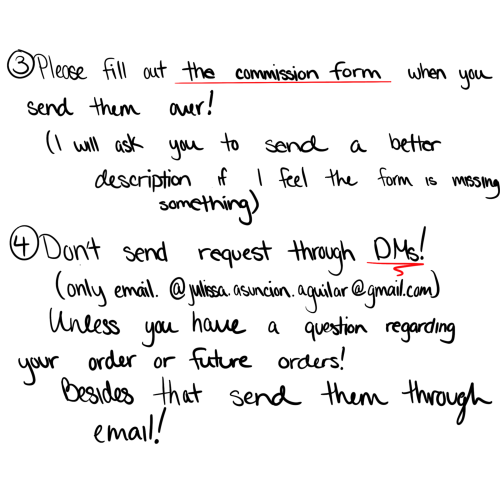 ③Please fill out the commission form when you
send them over!
(I will ask you to send a better
description if I feel the form is missing
something)
④Don't send request through DMs!
(only email. @julissa.asuncion.aguilar@gmail.com)
Unless you have a question regarding
your order or future orders!
Besides that send them through
email!